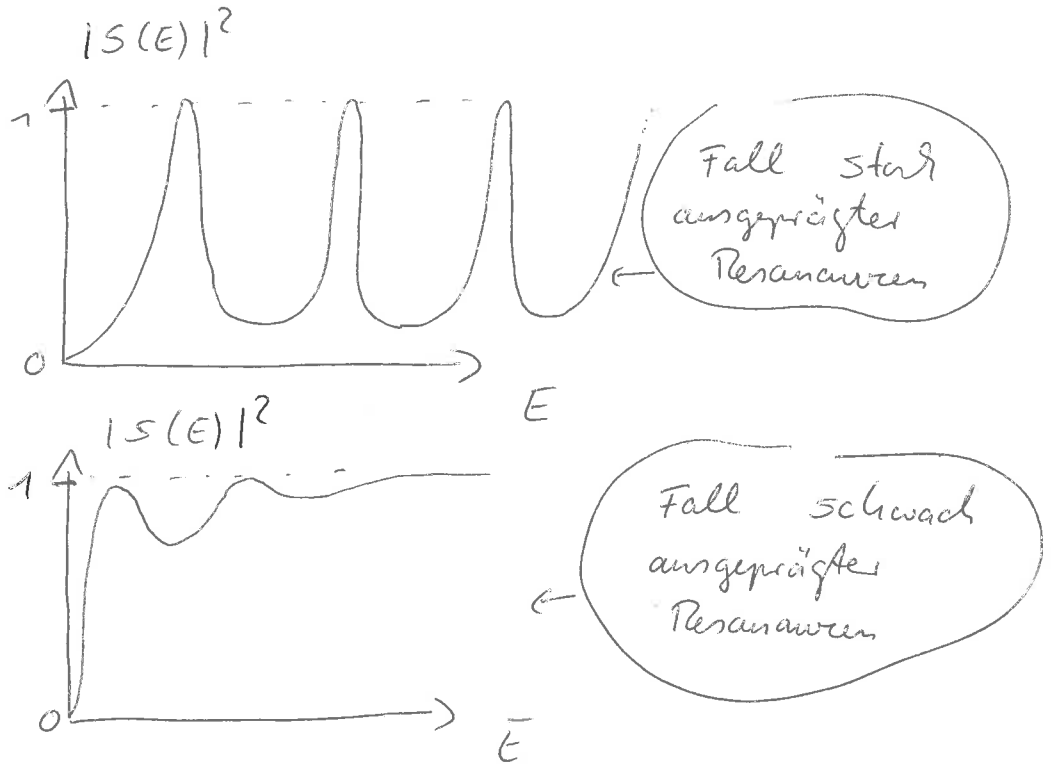 |S(E)|²
1
Fall stark
ausgeprägter
Resonanzen
0
E
|S(E)|²
1
Fall schwach
ausgeprägter
Resonanzen
0
E